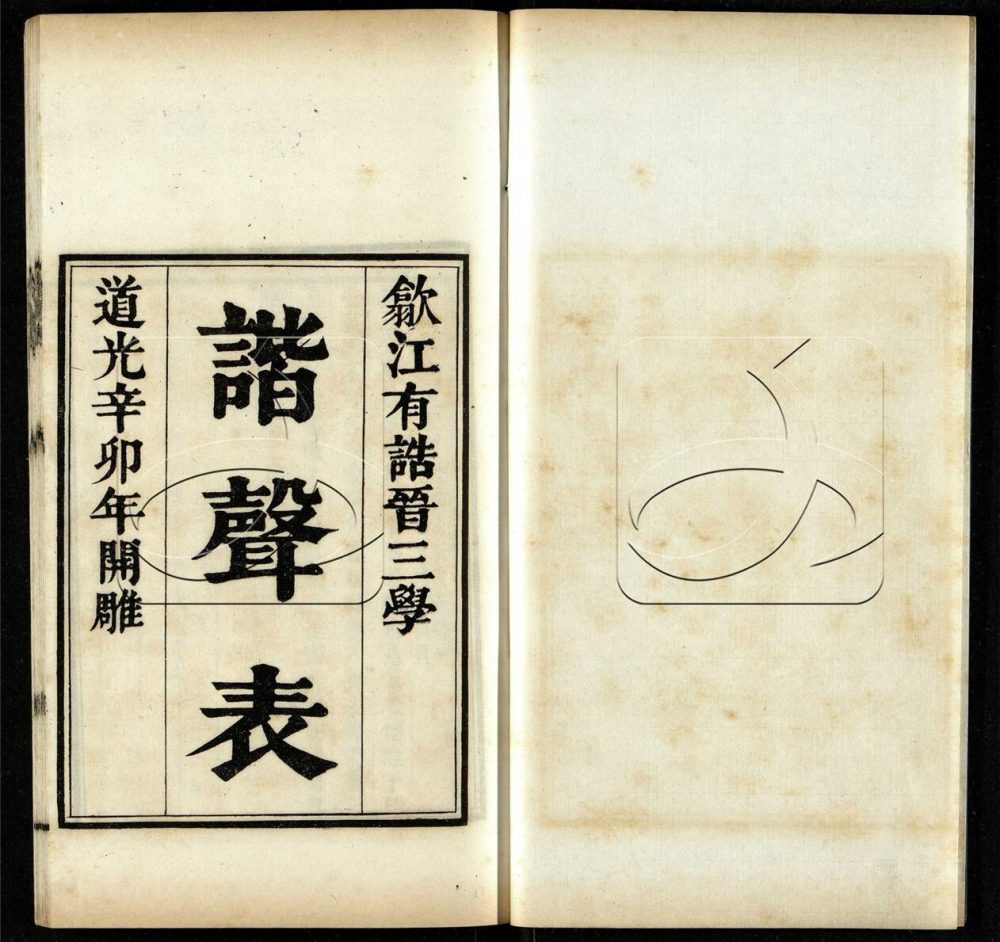 歙江有誥晉三學
諧聲表
道光辛卯年開雕